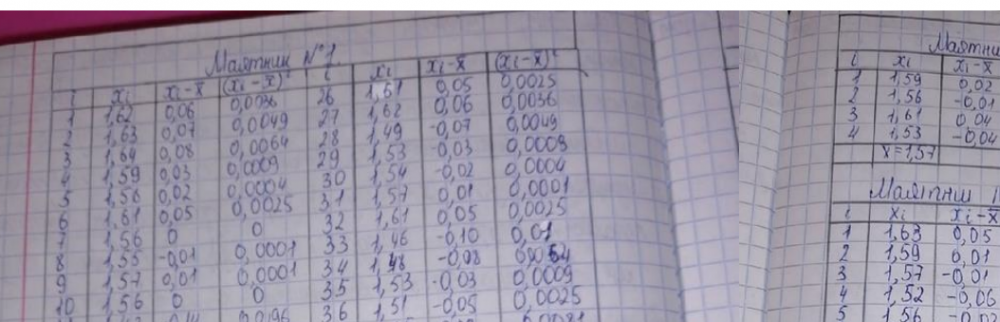 Маятник №1
i xi xi-x̄ (xi-x̄)² i xi xi-x̄ (xi-x̄)²
1 1,62 0,06 0,0036 26 1,61 0,05 0,0025
2 1,63 0,07 0,0049 27 1,62 0,06 0,0036
3 1,64 0,08 0,0064 28 1,49 -0,07 0,0049
4 1,59 0,03 0,0009 29 1,53 -0,03 0,0009
5 1,58 0,02 0,0004 30 1,54 -0,02 0,0004
6 1,61 0,05 0,0025 31 1,57 0,01 0,0001
7 1,56 0 0 32 1,61 0,05 0,0025
8 1,55 -0,01 0,0001 33 1,46 -0,10 0,01
9 1,57 0,01 0,0001 34 1,48 -0,08 0,0064
10 1,56 0 0 35 1,53 -0,03 0,0009
36 1,51 -0,05 0,0025
i xi xi-x̄
1 1,59 0,02
2 1,56 -0,01
3 1,61 0,04
4 1,53 -0,04
x̄=1,57
Маятник
i xi xi-x̄
1 1,63 0,05
2 1,59 0,01
3 1,57 -0,01
4 1,52 -0,06
5 1,56